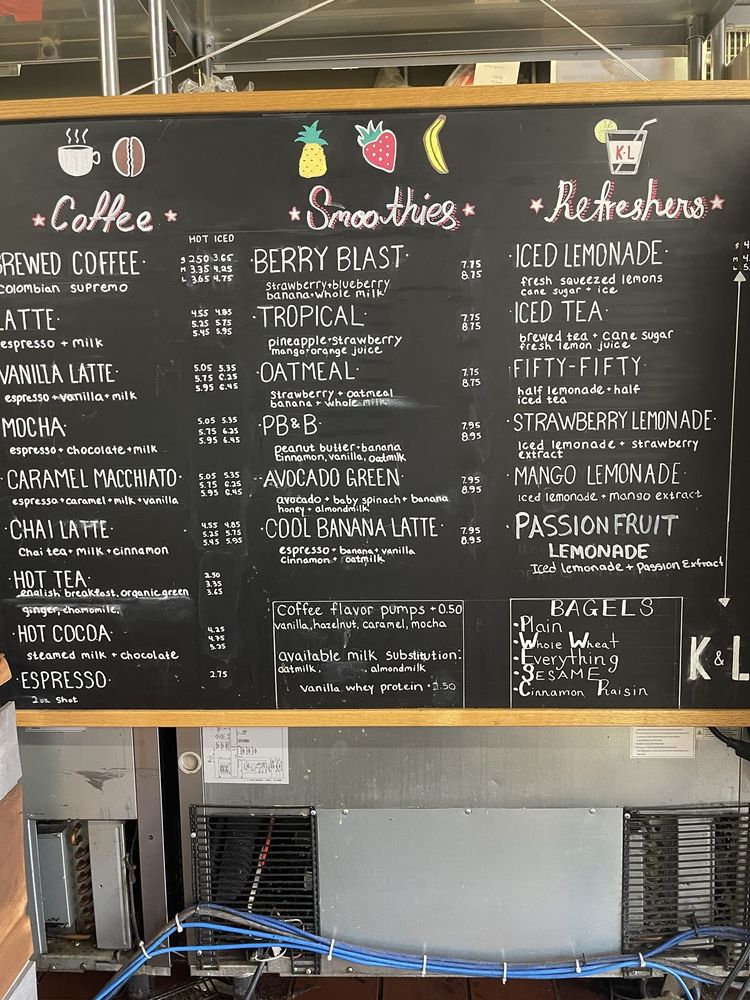 Coffee
HOT ICED
BREWED COFFEE S 2.50 3.65
colombian supremo M 3.35 4.25
L 3.65 4.75
LATTE 4.55 4.85
espresso + milk 5.25 5.75
5.45 5.95
VANILLA LATTE 5.05 5.35
espresso+vanilla+milk 5.75 6.25
5.95 6.45
MOCHA 5.05 5.35
espresso+chocolate+milk 5.75 6.25
5.95 6.45
CARAMEL MACCHIATO 5.05 5.35
espresso+caramel+milk+vanilla 5.75 6.25
5.95 6.45
CHAI LATTE 4.55 4.85
Chai tea+milk+cinnamon 5.25 5.75
5.45 5.95
HOT TEA 2.50
english breakfast, organic green 3.35
ginger, chamomile, 3.65
HOT COCOA 4.25
steamed milk + chocolate 4.75
5.25
ESPRESSO 2.75
2oz shot
Smoothies
BERRY BLAST 7.75
strawberry+blueberry 8.75
banana+whole milk
TROPICAL 7.75
pineapple+strawberry 8.75
mango+orange juice
OATMEAL 7.75
Strawberry + oatmeal 8.75
banana + whole milk
PB&B 7.95
peanut butter+banana 8.95
cinnamon, vanilla, oatmilk
AVOCADO GREEN 7.95
avocado + baby spinach + banana 8.95
honey + almondmilk
COOL BANANA LATTE 7.95
espresso + banana + vanilla 8.95
Cinnamon + oatmilk
Coffee flavor pumps +0.50
vanilla, hazelnut, caramel, mocha
available milk substitution:
oatmilk, , almondmilk
vanilla whey protein + 2.50
Refreshers
K·L
ICED LEMONADE
fresh squeezed lemons
cane sugar + ice
ICED TEA
brewed tea + cane sugar
fresh lemon juice
FIFTY-FIFTY
half lemonade + half
iced tea
STRAWBERRY LEMONADE
Iced lemonade + strawberry
extract
MANGO LEMONADE
iced lemonade + mango extract
PASSIONFRUIT
LEMONADE
Iced lemonade + Passion Extract
BAGELS
Plain
Whole Wheat
Everything
SESAME
Cinnamon Raisin
K&L